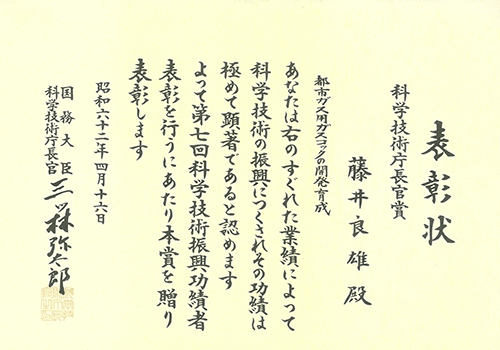 表彰状
科学技術庁長官賞
藤井良雄殿
都市ガス用ガスコックの開発育成
あなたは右のすぐれた業績によって
科学技術の振興につくされその功績は
極めて顕著であると認めます
よって第七回科学技術振興功績者
表彰を行うにあたり本賞を贈り
表彰します
昭和六十二年四月十六日
国務大臣
科学技術庁長官
三ッ林弥太郎